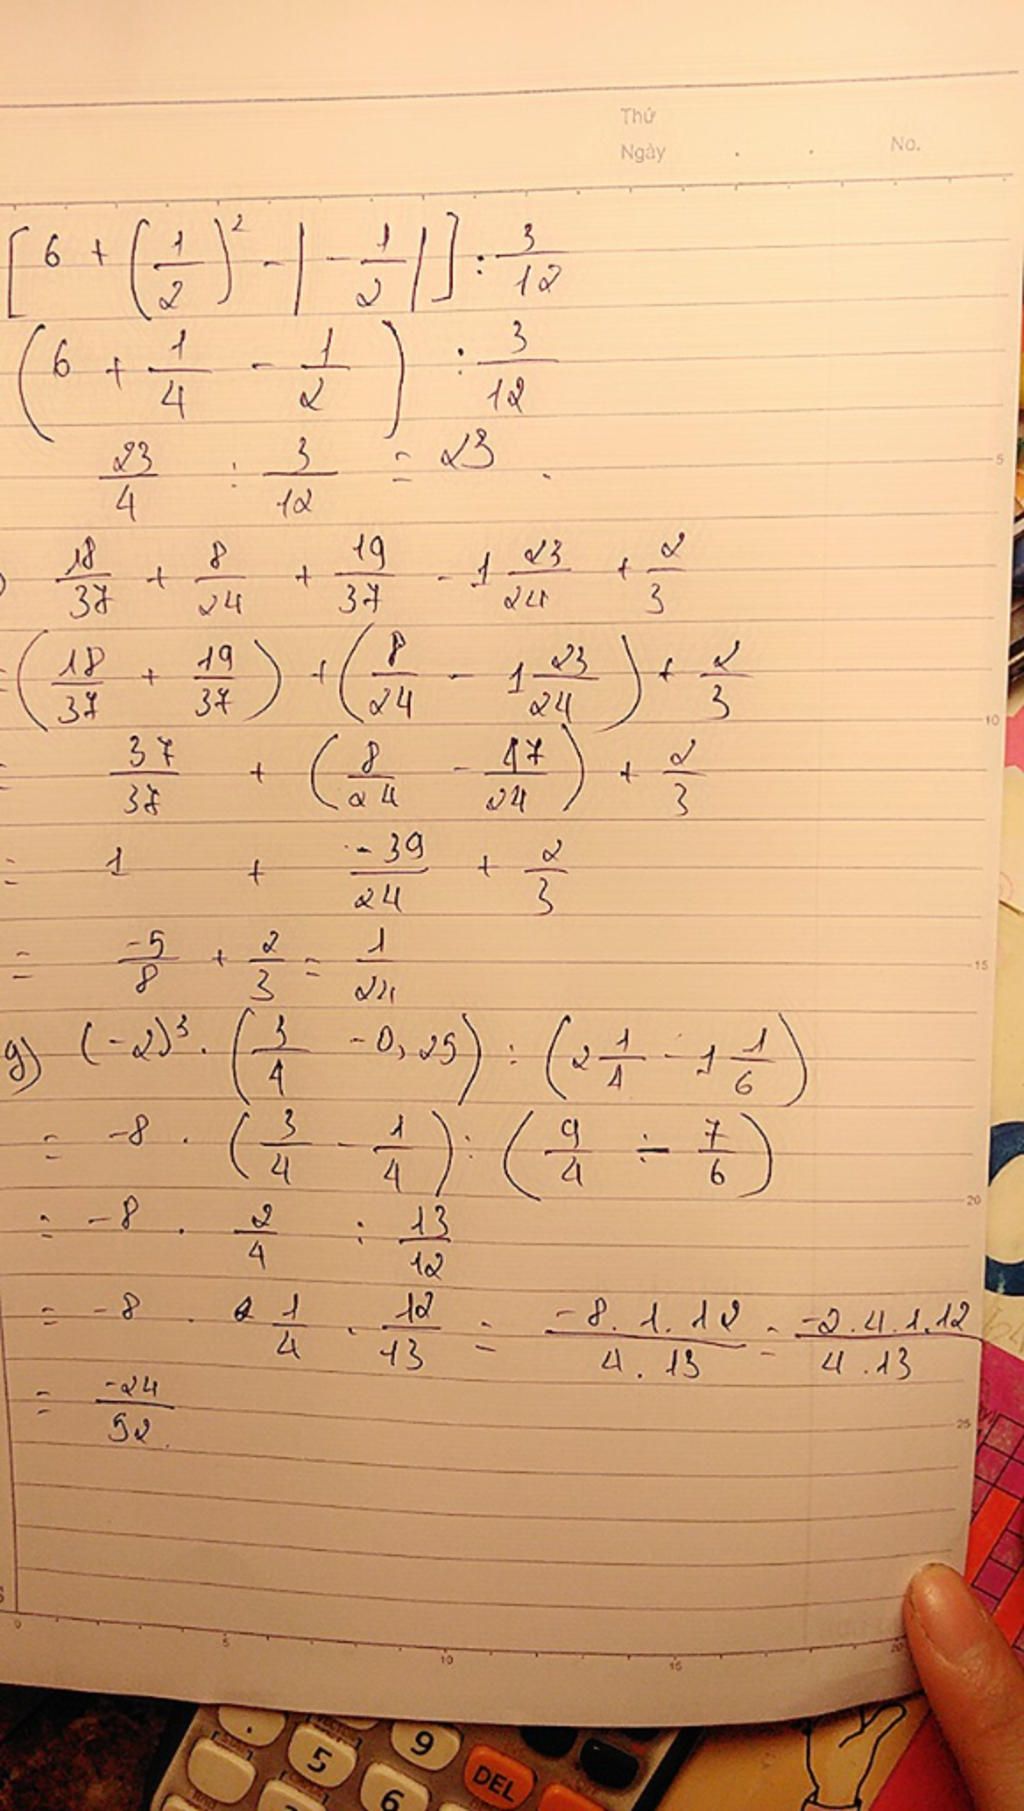 Thứ
Ngày . . No.
[6 + (1/2)² - |-1/2|] : 3/12
(6 + 1/4 - 1/2) : 3/12
23/4 : 3/12 = 23.
) 18/37 + 8/24 + 19/37 - 1 23/24 + 2/3
= (18/37 + 19/37) + (8/24 - 1 23/24) + 2/3
= 37/37 + (8/24 - 47/24) + 2/3
= 1 + -39/24 + 2/3
= -5/8 + 2/3 = 1/24
g) (-2)³ . (3/4 - 0,25) : (2 1/4 - 1 1/6)
= -8 . (3/4 - 1/4) : (9/4 - 7/6)
= -8 . 2/4 : 13/12
= -8 . 1/4 . 12/13 = -8.1.12/4.13 = -2.4.1.12/4.13
= -24/52.
5
10
15
20
25
0 5 10 15 20
9
5
6
DEL